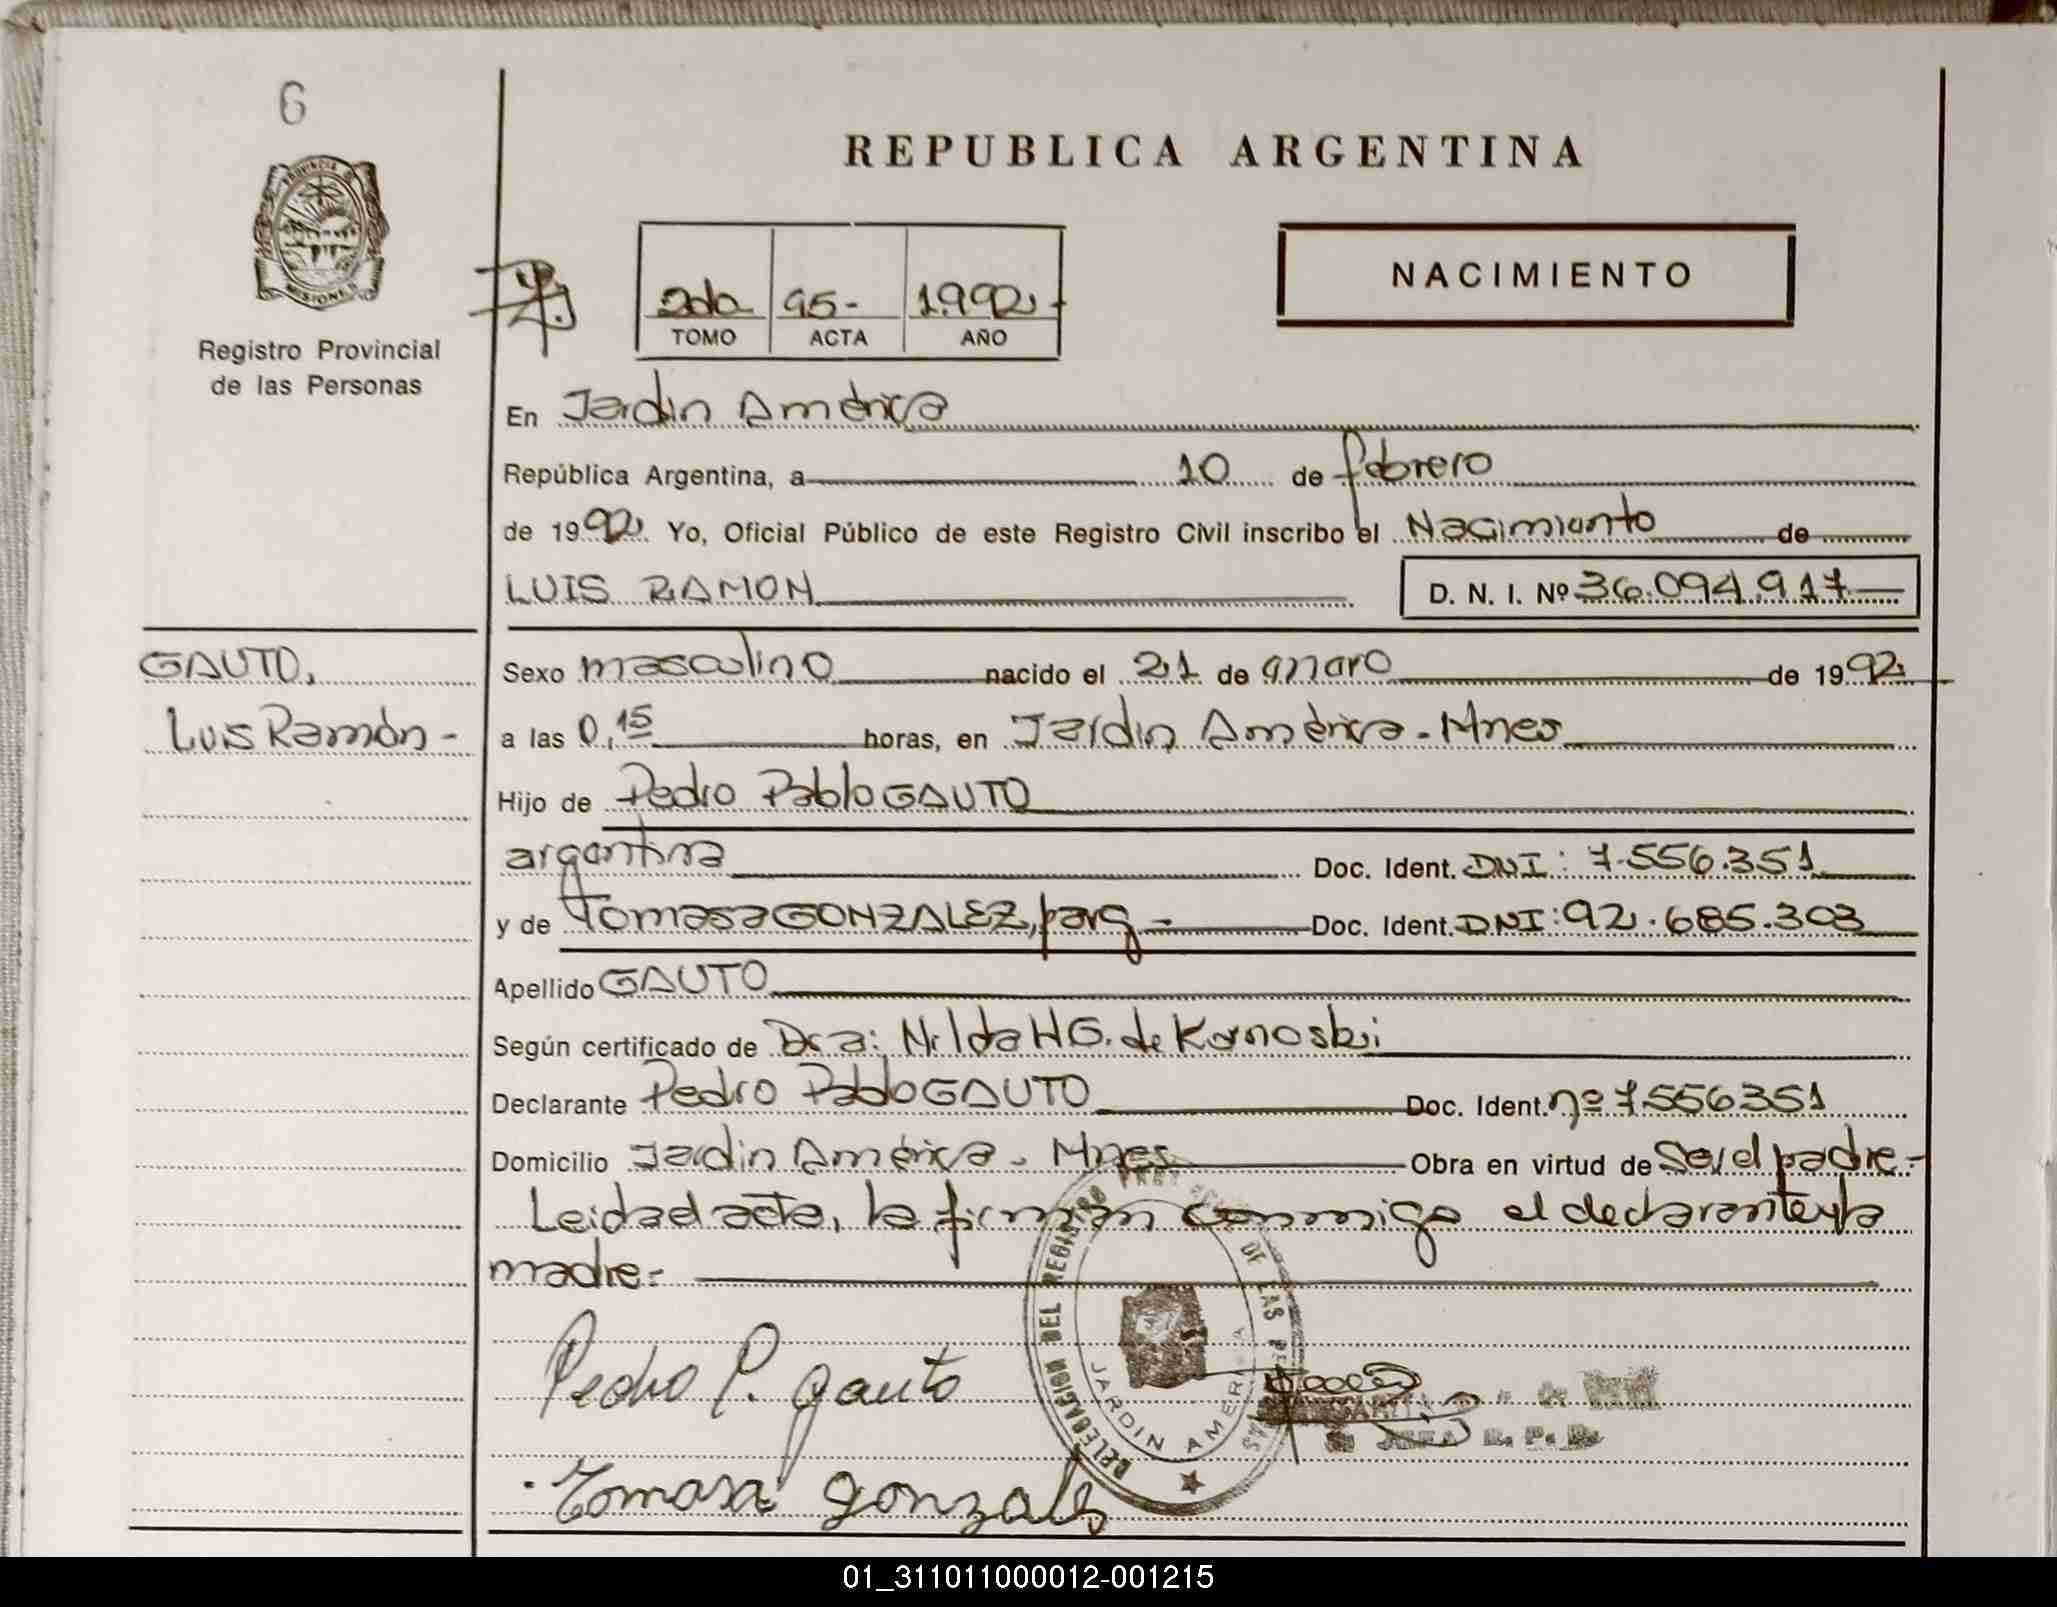 6
PROVINCIA DE
MISIONES
Registro Provincial
de las Personas
REPUBLICA ARGENTINA
2do 95- 1992
TOMO ACTA AÑO
NACIMIENTO
En Jardin América
República Argentina, a 10 de febrero
de 1992 Yo, Oficial Público de este Registro Civil inscribo el Nacimiento de
LUIS RAMON D. N. I. Nº 36.094.917
GAUTO,
Luis Ramón -
Sexo masculino nacido el 21 de enero de 1992
a las 0,15 horas, en Jardin América - Mnes
Hijo de Pedro Pablo GAUTO
argentina Doc. Ident. DNI: 7.556.351
y de Tomasa GONZALEZ, parg - Doc. Ident. DNI: 92.685.303
Apellido GAUTO
Según certificado de Dra: Nilda HG. de Kornoski
Declarante Pedro Pablo GAUTO Doc. Ident. nº 7556351
Domicilio Jardin América - Mnes Obra en virtud de Ser el padre -
Leida el acta, la firman conmigo el declarante y la
madre -
Pedro P. Gauto
Tomasa Gonzalez
DELEGACION DEL REGISTRO DE LAS
JARDIN AMERICA
JEFA R. P. P.
01_311011000012-001215